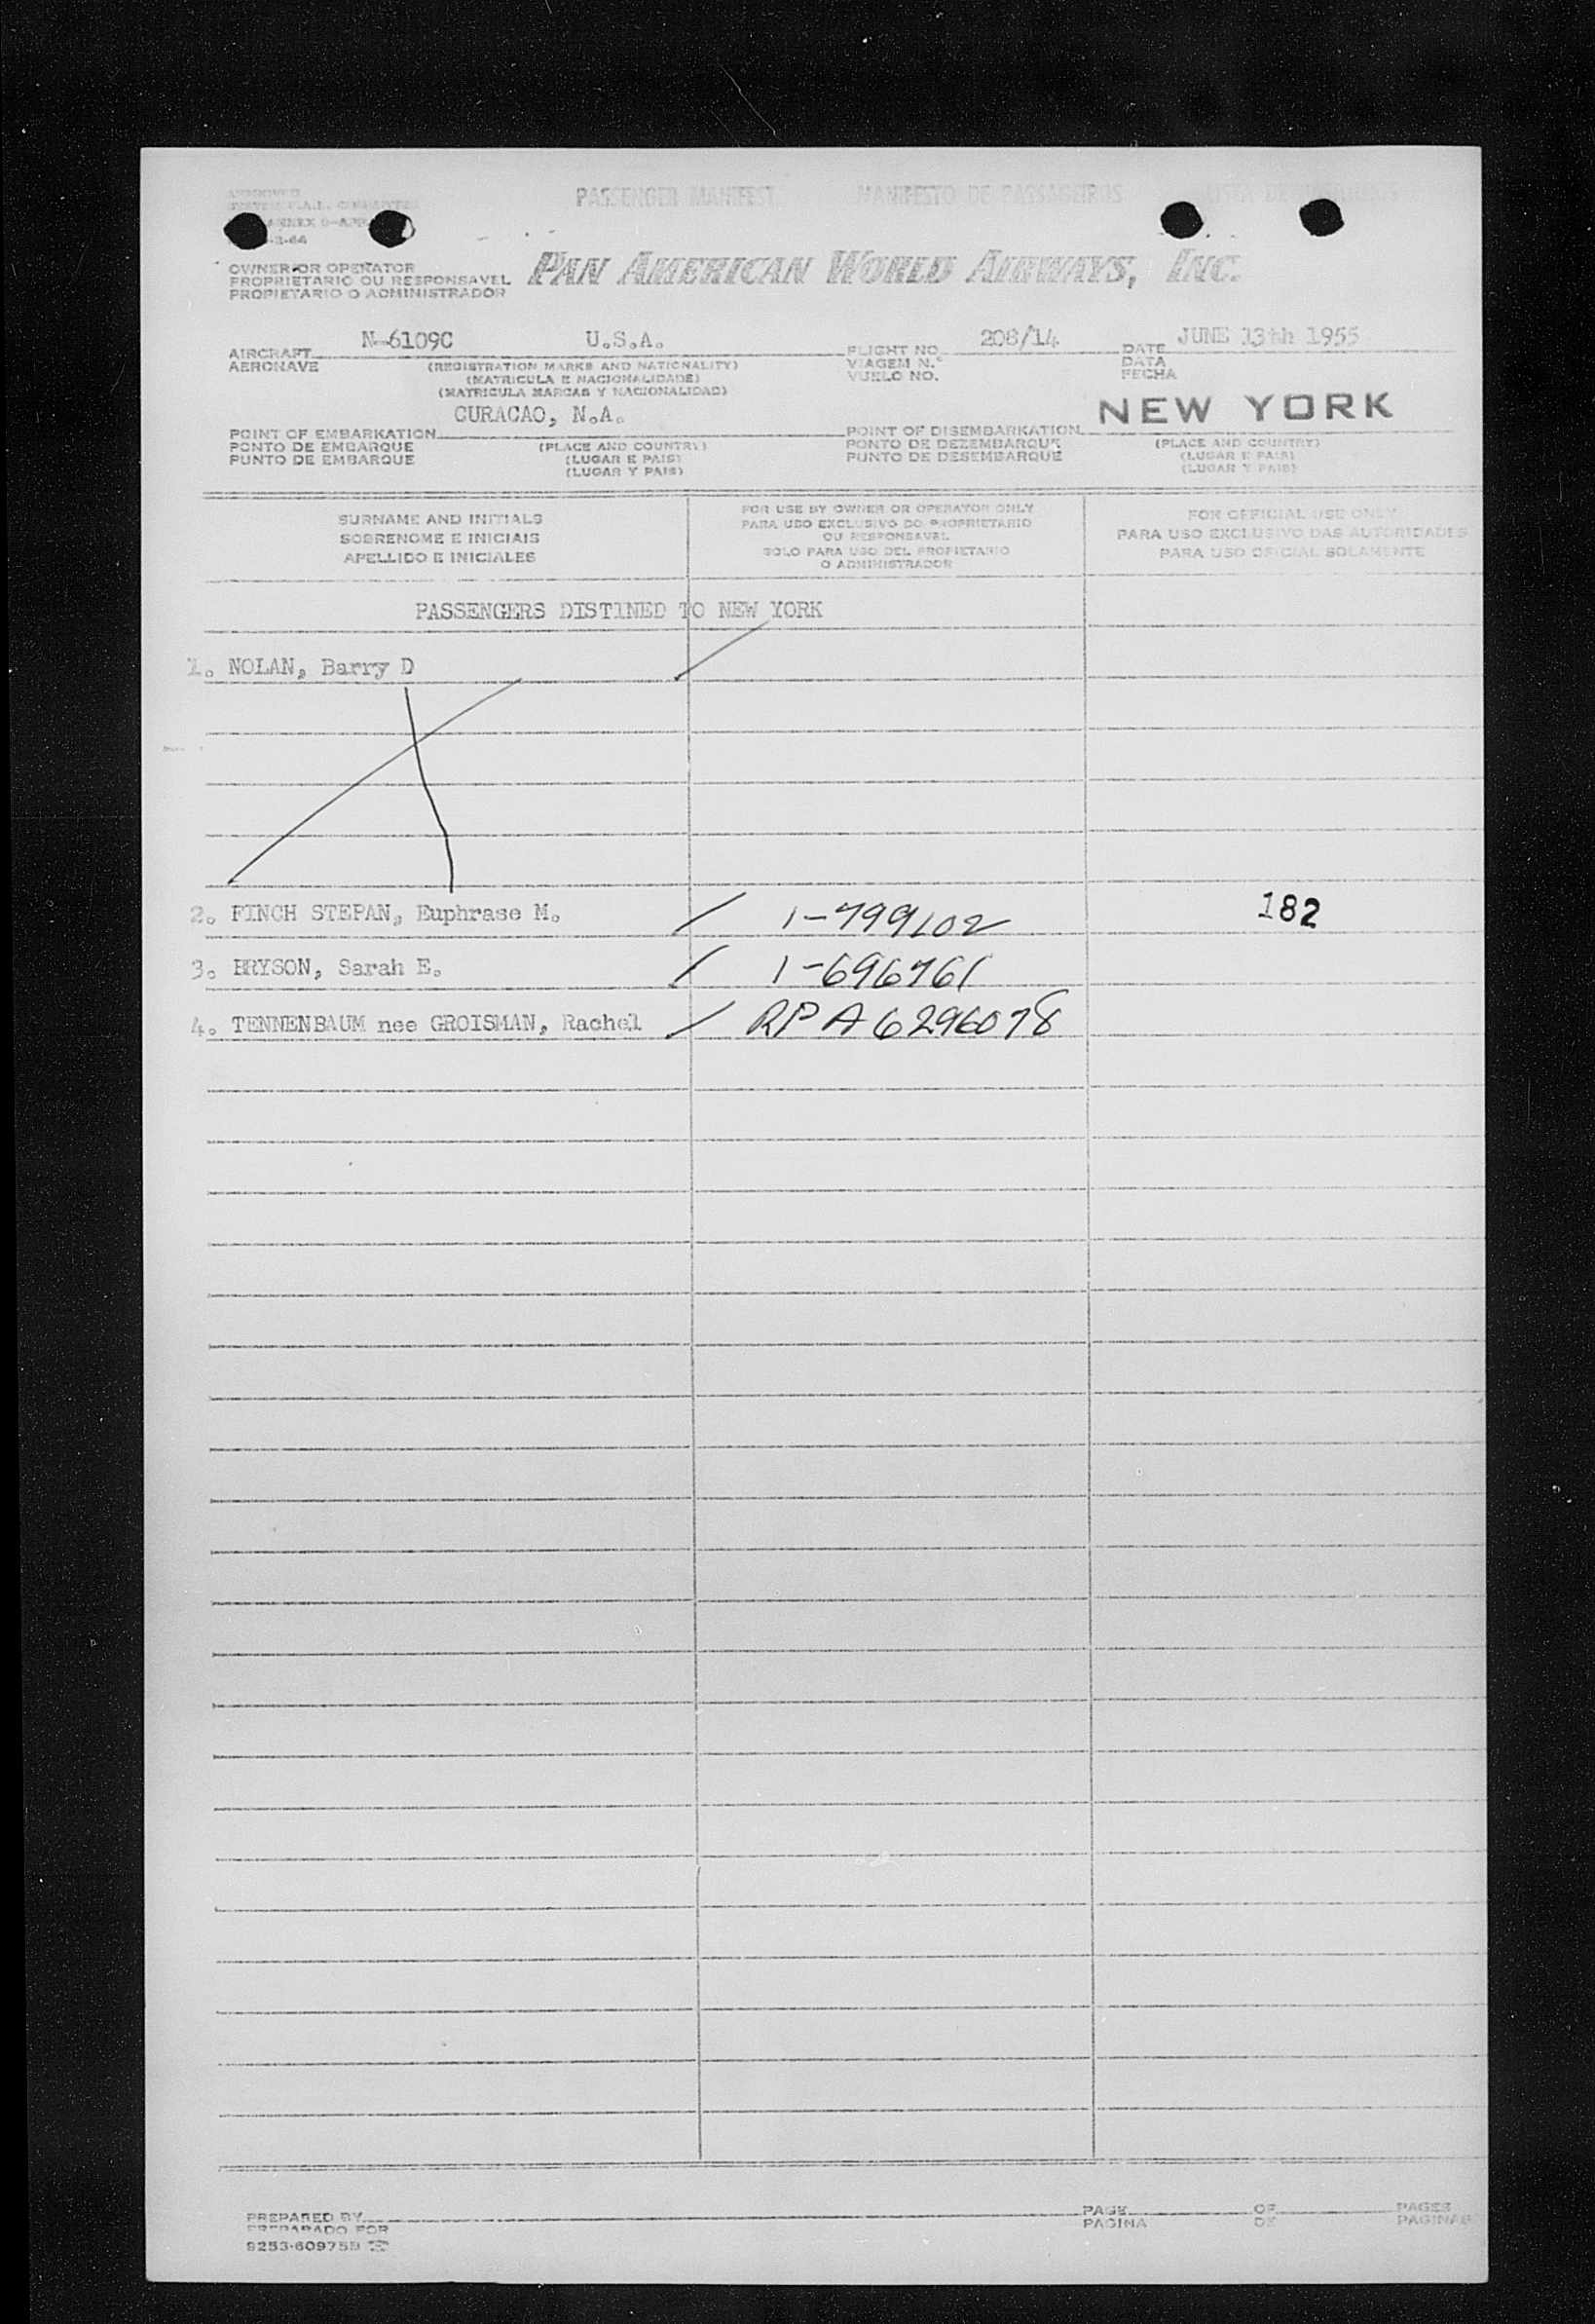 PASSENGER MANIFEST MANIFESTO DE PASSAGEIROS LISTA DE
ANNEX 9-APP
-2-44
OWNER OR OPERATOR
PROPRIETARIO OU RESPONSAVEL
PROPIETARIO O ADMINISTRADOR
PAN AMERICAN WORLD AIRWAYS, INC.
AIRCRAFT N-6109C U.S.A. FLIGHT NO. 208/14 DATE JUNE 13th 1955
AERONAVE (REGISTRATION MARKS AND NATIONALITY) VIAGEM N.º DATA
(MATRICULA E NACIONALIDADE) VUELO NO. FECHA
(MATRICULA MARCAS Y NACIONALIDAD)
POINT OF EMBARKATION CURACAO, N.A. POINT OF DISEMBARKATION NEW YORK
PONTO DE EMBARQUE (PLACE AND COUNTRY) PONTO DE DEZEMBARQUE (PLACE AND COUNTRY)
PUNTO DE EMBARQUE (LUGAR E PAIS) PUNTO DE DESEMBARQUE (LUGAR E PAIS)
(LUGAR Y PAIS) (LUGAR Y PAIS)
SURNAME AND INITIALS
SOBRENOME E INICIAIS
APELLIDO E INICIALES
FOR USE BY OWNER OR OPERATOR ONLY
PARA USO EXCLUSIVO DO PROPRIETARIO
OU RESPONSAVEL
SOLO PARA USO DEL PROPIETARIO
O ADMINISTRADOR
FOR OFFICIAL USE ONLY
PARA USO EXCLUSIVO DAS AUTORIDADES
PARA USO OFICIAL SOLAMENTE
PASSENGERS DISTINED TO NEW YORK
1. NOLAN, Barry D
2. FINCH STEPAN, Euphrase M. / 1-799102 182
3. BRYSON, Sarah E. / 1-696761
4. TENNENBAUM nee GROISMAN, Rachel / RP A6296078
PREPARED BY PAGE OF PAGES
PREPARADO POR PAGINA DE PAGINAS
9253-609755